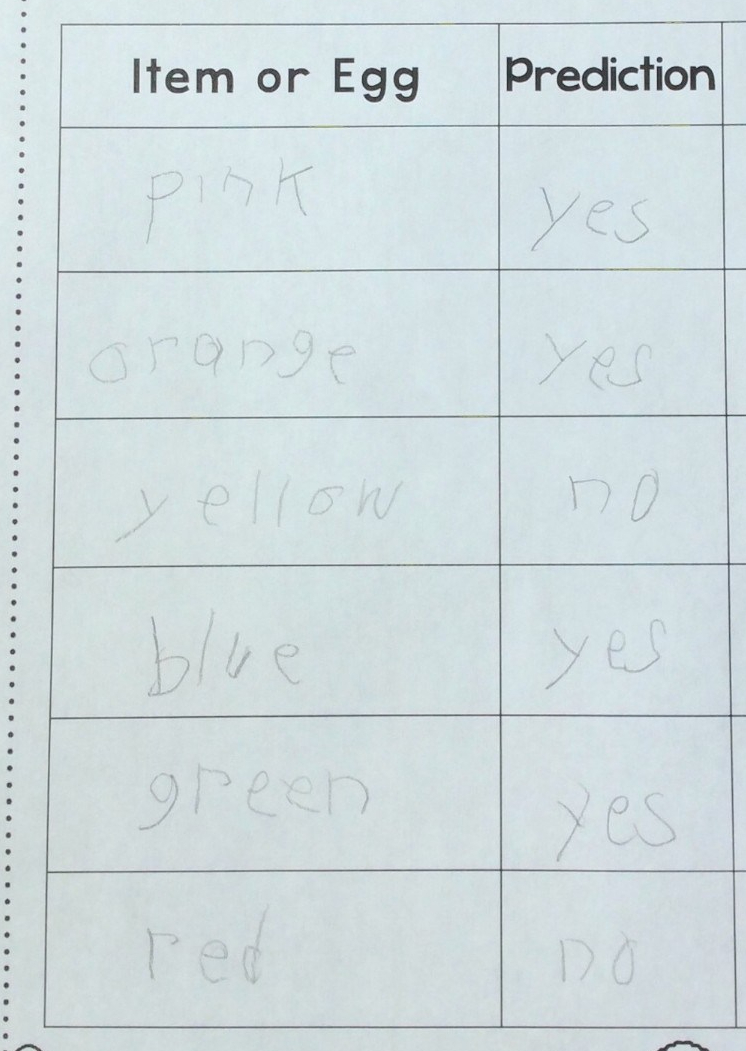 Item or Egg Prediction
pink yes
orange yes
yellow no
blue yes
green yes
red no